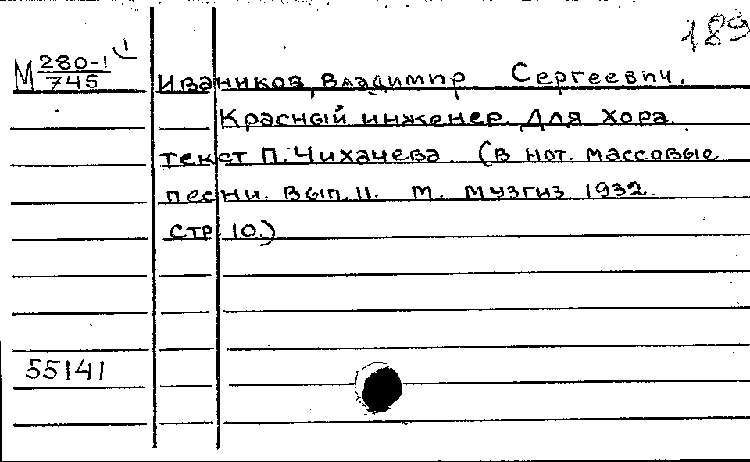 189
М 280-1
745
Иванников, Владимир Сергеевич.
Красный инженер. Для хора.
текст П. Чихачева. (в нот. массовые
песни. Вып. II. М. Музгиз 1932.
стр 10.)
55141